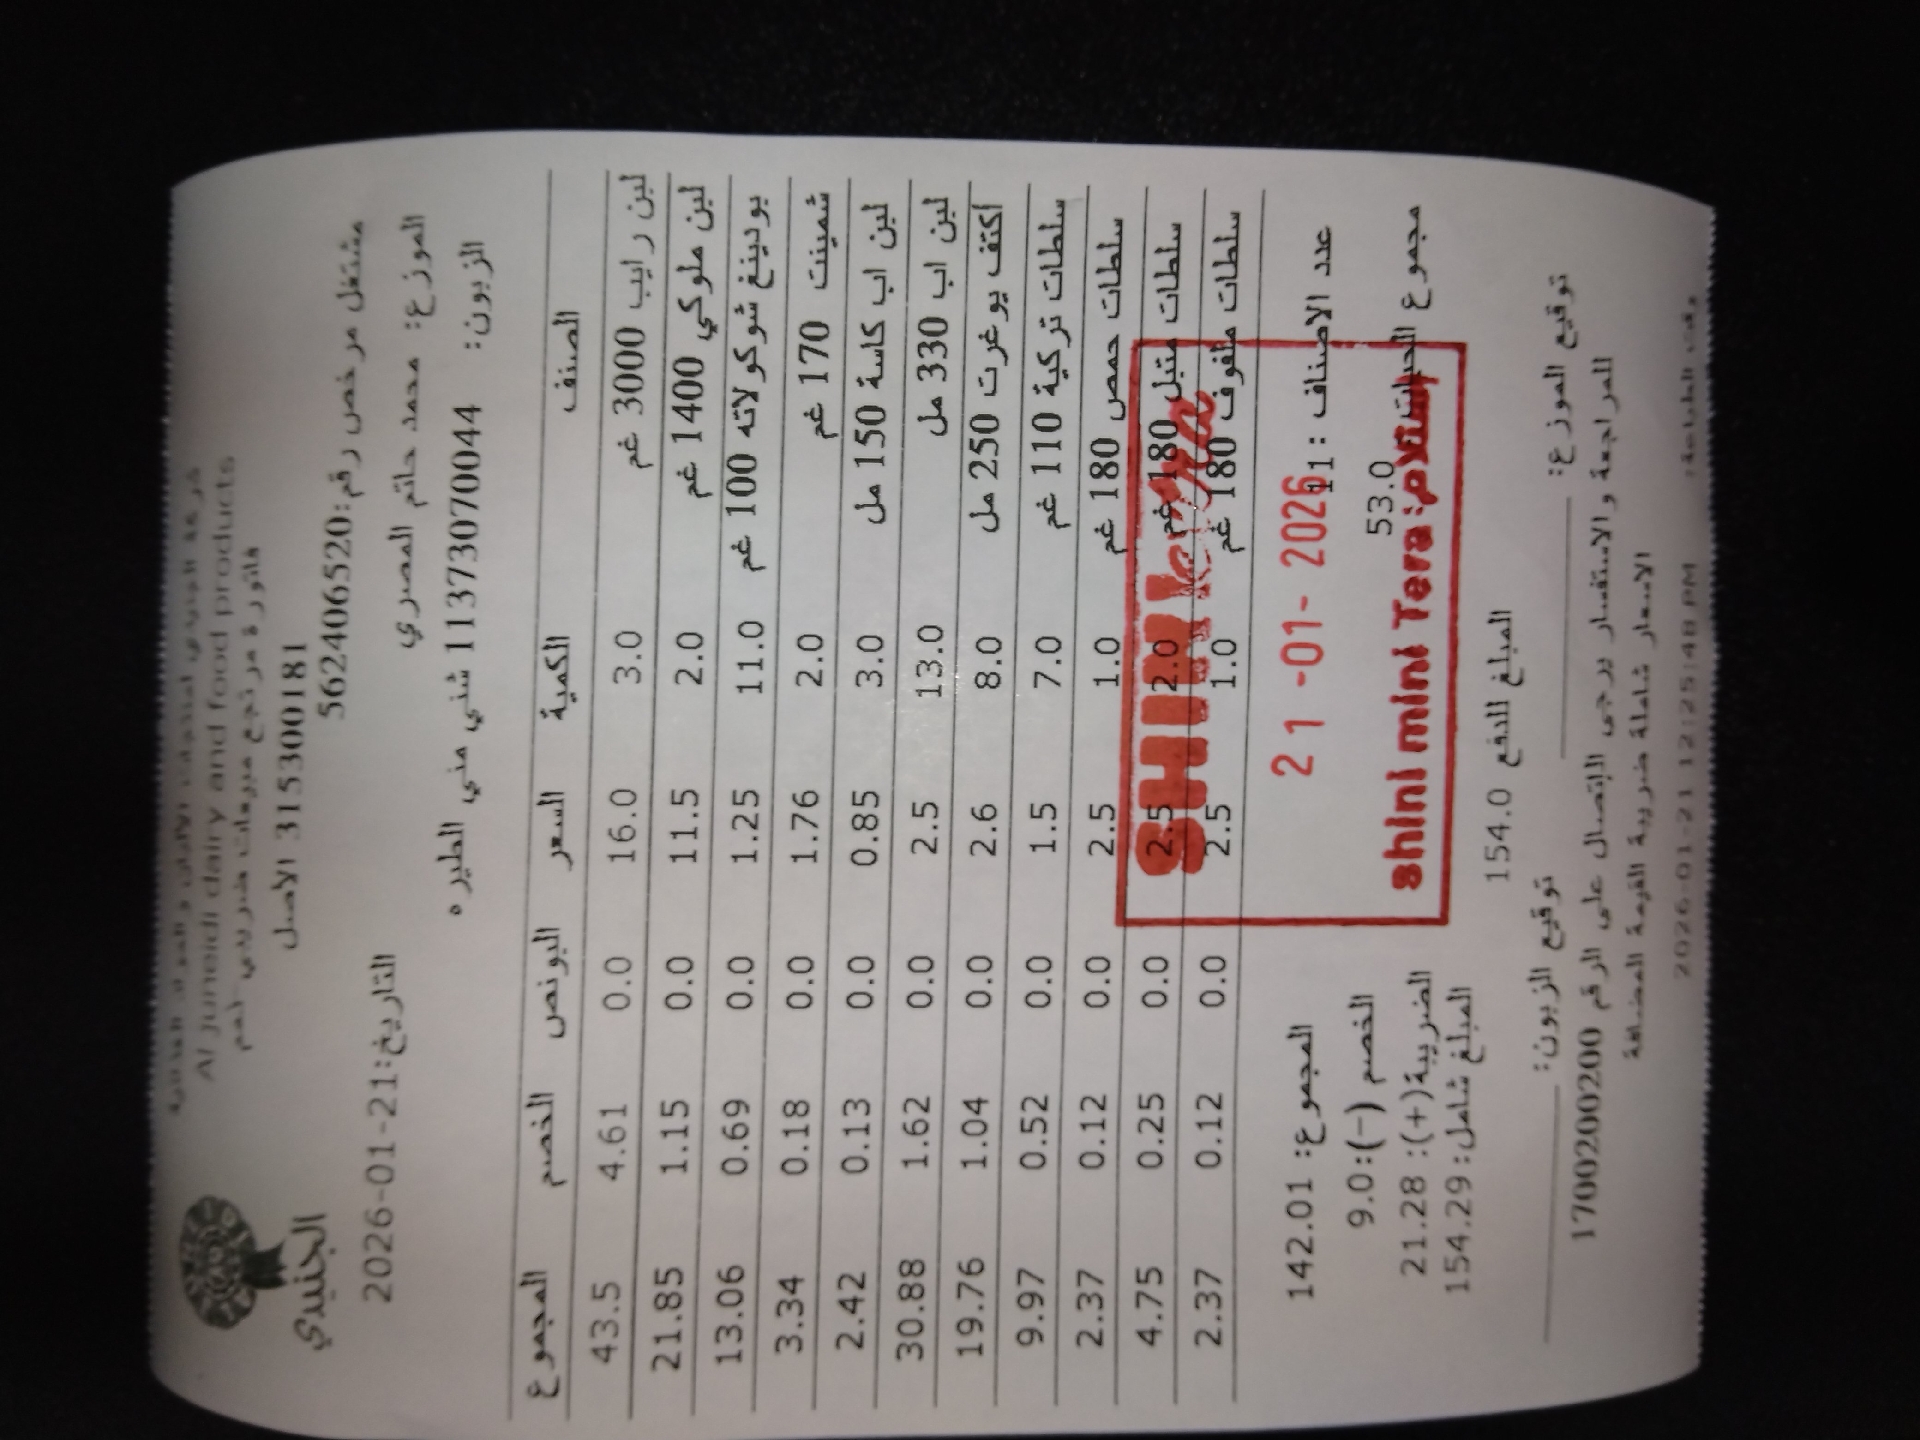 شركة الجنيدي لمنتجات الألبان و المواد الغذائية
Al juneidi dairy and food products
فاتورة مرتجع مبيعات ضريبي-لحم
315300181 الاصل
الجنيدي
مشتغل مرخص رقم:562406520
التاريخ:2026-01-21
الموزع: محمد حاتم المصري
الزبون: 113730700044 شني مني الطيره
الصنف الكمية السعر البونص الخصم المجموع
لبن رايب 3000 غم 3.0 16.0 0.0 4.61 43.5
لبن ملوكي 1400 غم 2.0 11.5 0.0 1.15 21.85
بودينغ شوكولاته 100 غم 11.0 1.25 0.0 0.69 13.06
شمينت 170 غم 2.0 1.76 0.0 0.18 3.34
لبن اب كاسة 150 مل 3.0 0.85 0.0 0.13 2.42
لبن اب 330 مل 13.0 2.5 0.0 1.62 30.88
أكتف يوغرت 250 مل 8.0 2.6 0.0 1.04 19.76
سلطات تركية 110 غم 7.0 1.5 0.0 0.52 9.97
سلطات حمص 180 غم 1.0 2.5 0.0 0.12 2.37
سلطات متبل 180 غم 2.0 2.5 0.0 0.25 4.75
سلطات ملفوف 180 غم 1.0 2.5 0.0 0.12 2.37
SHINI
21 -01- 2026
Shini mini Tera
عدد الاصناف : 11
المجموع: 142.01
مجموع الحبات: 53.0
الخصم (-):9.0
الضريبة(+): 21.28
المبلغ شامل: 154.29
المبلغ للدفع 154.0
توقيع الموزع: توقيع الزبون:
للمراجعة و الاستفسار يرجى الاتصال على الرقم 1700200200
الاسعار شاملة ضريبة القيمة المضافة
وقت الطباعة: 2026-01-21 12:25:48 PM